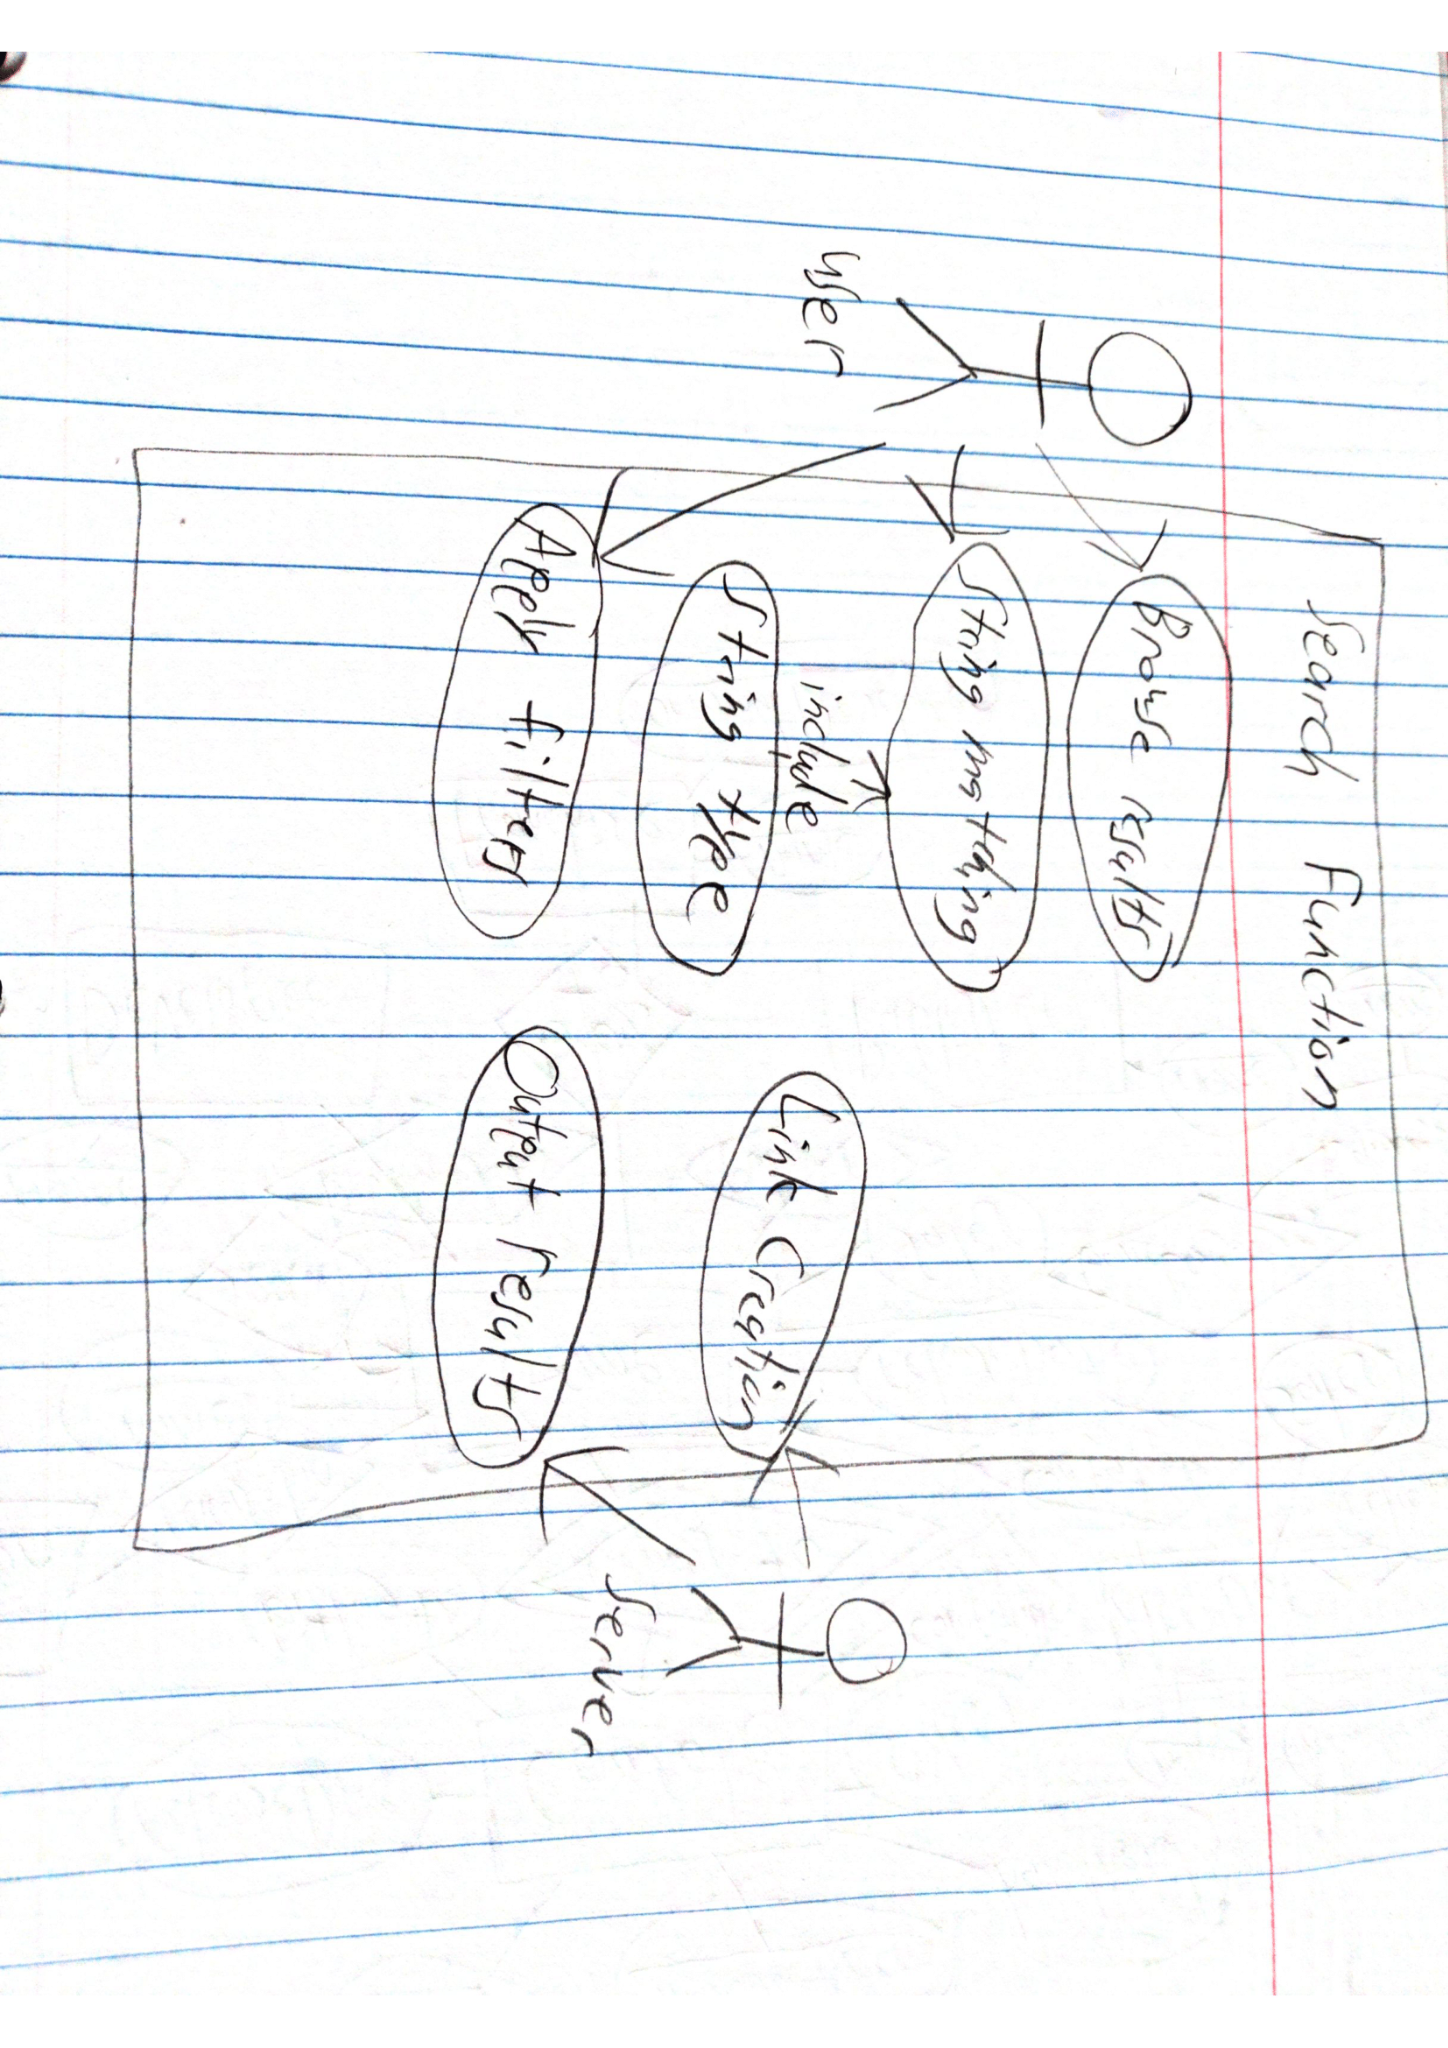 Search Function
User
Browse results
String matching
include
String type
Apply filters
Link Creation
Output results
Server